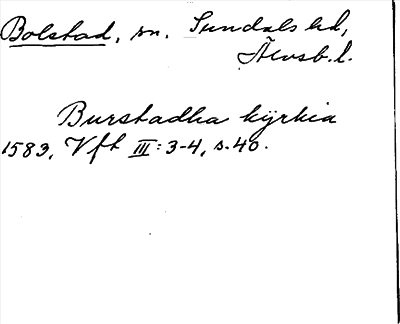 Bolstad, sn. Sundals hd,
Älvsb. l.
Burstadha kyrkia
1583, Vft III: 3-4, s. 40.